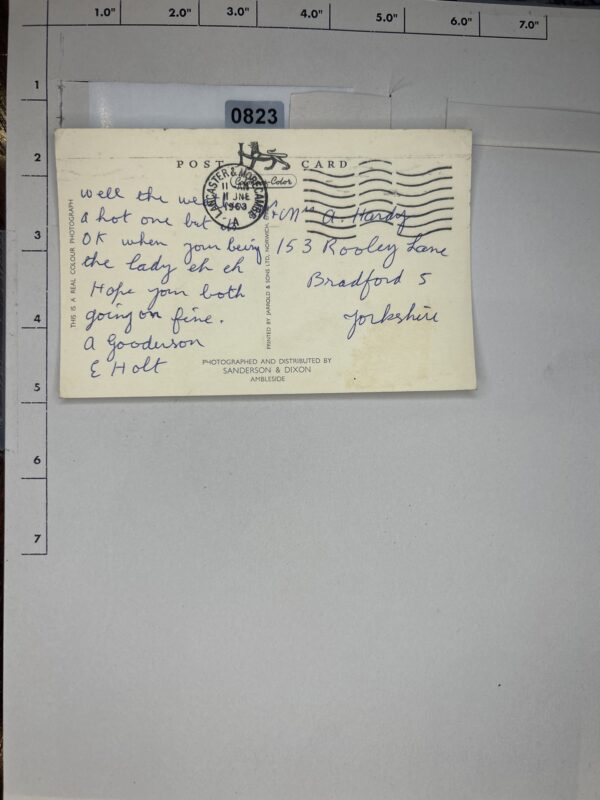 1.0" 2.0" 3.0" 4.0" 5.0" 6.0" 7.0"
1
2
3
4
5
6
7
0823
POST CARD
THIS IS A REAL COLOUR PHOTOGRAPH
Well the
a hot one but
OK when your being
the lady eh eh
Hope your both
going on fine.
A Gooderson
E Holt
LANCASTER & MORECAMBE
11 AM
11 JNE
1963
A
-Color
PRINTED BY JARROLD & SONS LTD, NORWICH
& Mrs A. Hardy
153 Rooley Lane
Bradford 5
Yorkshire
PHOTOGRAPHED AND DISTRIBUTED BY
SANDERSON & DIXON
AMBLESIDE